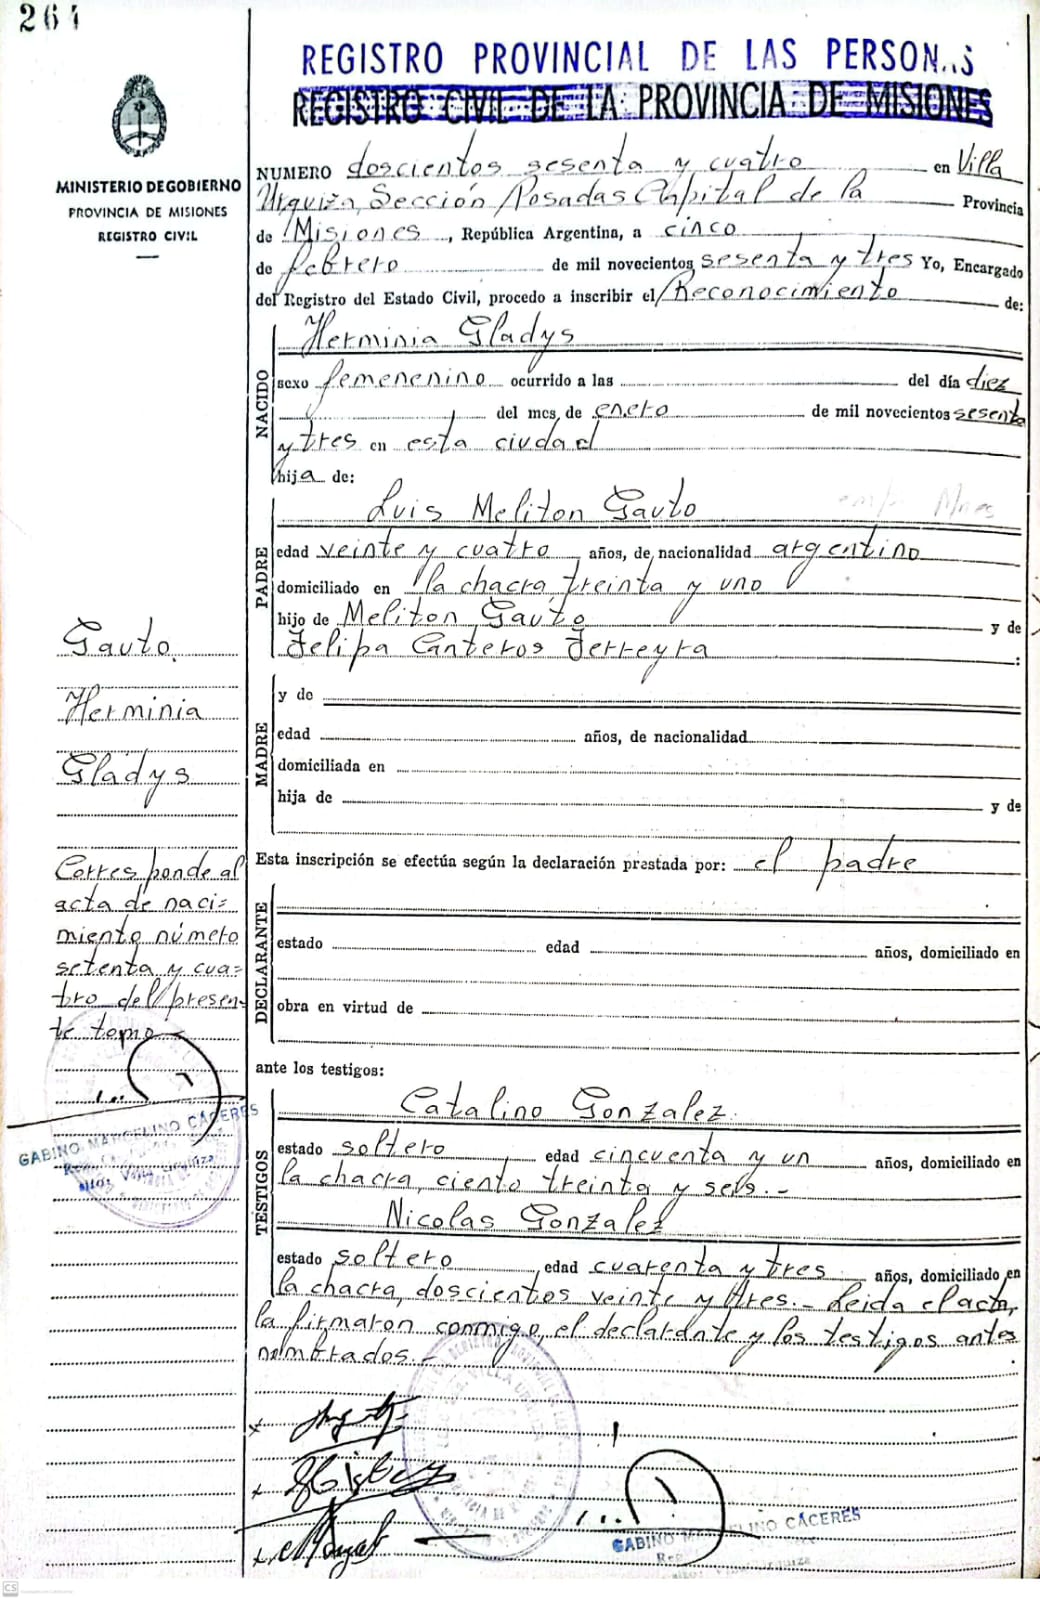 264
REGISTRO PROVINCIAL DE LAS PERSONAS
REGISTRO CIVIL DE LA PROVINCIA DE MISIONES
MINISTERIO DE GOBIERNO
PROVINCIA DE MISIONES
REGISTRO CIVIL
NUMERO doscientos sesenta y cuatro en Villa
Urquiza, Sección Posadas Capital de la Provincia
de Misiones, República Argentina, a cinco
de febrero de mil novecientos sesenta y tres Yo, Encargado
del Registro del Estado Civil, procedo a inscribir el Reconocimiento de:
NACIDO
Herminia Gladys
sexo femenenino ocurrido a las del día diez
del mes de enero de mil novecientos sesenta
y tres en esta ciudad
hija de:
PADRE
Luis Meliton Gauto
edad veinte y cuatro años, de nacionalidad argentino
domiciliado en la chacra treinta y uno
hijo de Meliton Gauto y de
Felipa Canteros Ferreyra :
MADRE
y de
edad años, de nacionalidad
domiciliada en
hija de y de
Esta inscripción se efectúa según la declaración prestada por: el padre
DECLARANTE
estado edad años, domiciliado en
obra en virtud de
ante los testigos:
TESTIGOS
Catalino Gonzalez.
estado soltero edad cincuenta y un años, domiciliado en
la chacra, ciento treinta y seis.-
Nicolas Gonzalez
estado soltero, edad cuarenta y tres años, domiciliado en
la chacra, doscientos veinte y tres.- Leida el acta,
la firmaron conmigo, el declarante y los testigos antes
nombrados.-
Gauto.
Herminia
Gladys
Corresponde al
acta de naci-
miento número
setenta y cua-
tro del presen-
te tomo
GABINO MARCELINO CÁCERES
GABINO MARCELINO CÁCERES
CS